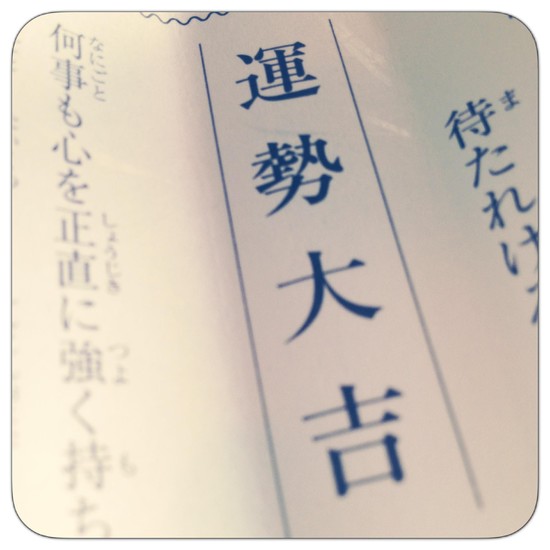 待たれけ
運勢大吉
何事も心を正直に強く持ち